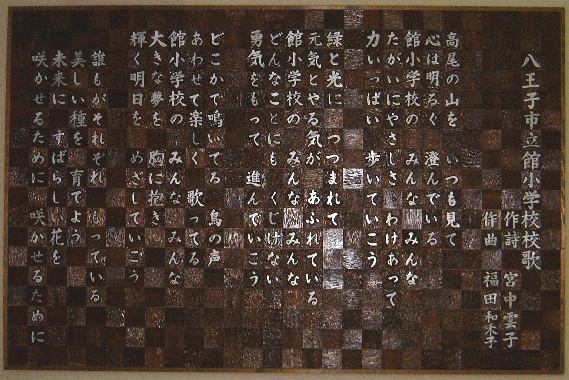 八王子市立館小学校校歌
作詩 宮中雲子
作曲 福田和禾子
高尾の山を いつも見て
心は明るく 澄んでいる
館小学校の みんな みんな
たがいにやさしさ わけあって
力いっぱい 歩いていこう
緑と光に つつまれて
元気とやる気が あふれている
館小学校の みんな みんな
どんなことにも くじけない
勇気をもって 進んでいこう
どこかで鳴いてる 鳥の声
あわせて楽しく 歌ってる
館小学校の みんな みんな
大きな夢を 胸に抱き
輝く明日を めざしていこう
誰もがそれぞれ もっている
美しい種を 育てよう
未来に すばらしい花を
咲かせるために 咲かせるために